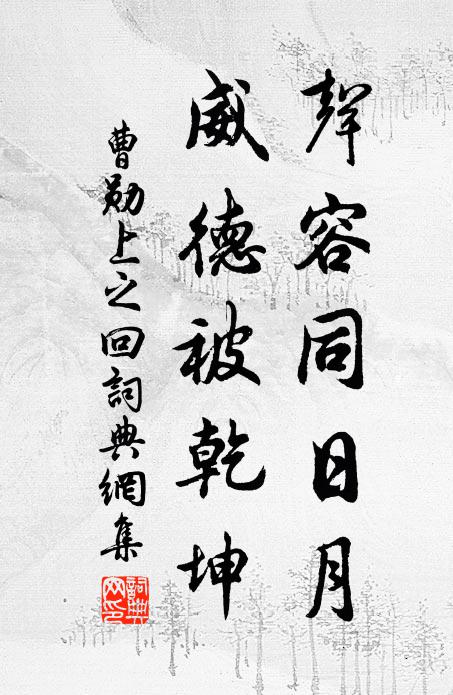 聲容同日月
威德被乾坤
曹勛上之回詞典網集
詞典網印